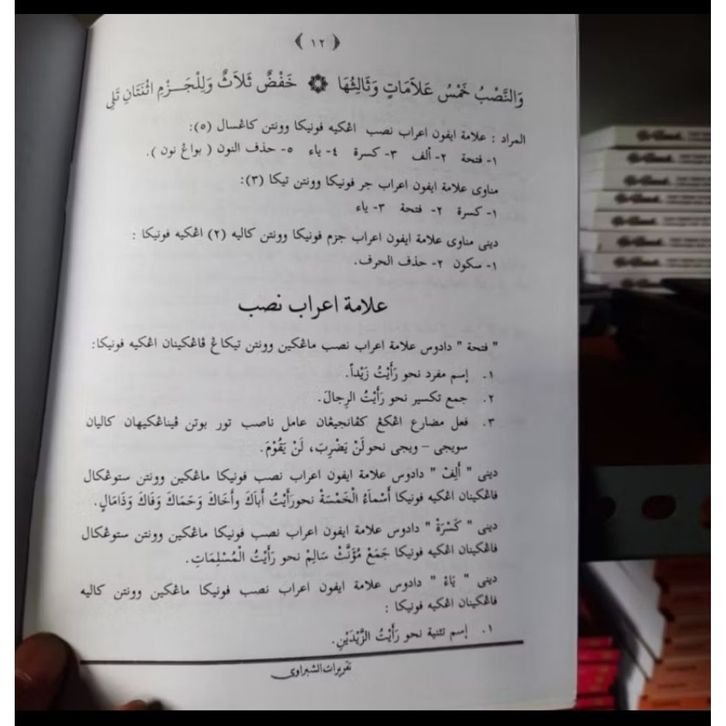 ﴿ ١٢ ﴾
وَالنَّصْبُ خَمْسُ عَلاَمَاتٍ وَثَالِثُهَا ۞ خَفْضٌ ثَلاَثٌ وَلِلْجَــزْمِ اثْنَتَانِ تَلِي
المراد : علامة ايفون اعراب نصب اڠكيه فونيكا وونتن كاڠسال (٥):
١- فتحة ٢- ألف ٣- كسرة ٤- ياء ٥- حذف النون ( بواڠ نون ).
مناوى علامة ايفون اعراب جر فونيكا وونتن تيكا (٣):
١- كسرة ٢- فتحة ٣- ياء
دينى مناوى علامة ايفون اعراب جزم فونيكا وونتن كاليه (٢) اڠكيه فونيكا :
١- سكون ٢- حذف الحرف.
علامة اعراب نصب
" فتحة " دادوس علامة اعراب نصب ماڠكين وونتن تيكاڠ ڤاڠكينان اڠكيه فونيكا:
١. إسم مفرد نحو رَأَيْتُ زَيْداً.
٢. جمع تكسير نحو رَأَيْتُ الرِجالَ.
٣. فعل مضارع اڠكڠ كڤانجيڠان عامل ناصب تور بوتن ڤيناڠكيهان كاليان
سويجى – ويجى نحو لَنْ يَضْرِبَ، لَنْ يَقُوْمَ.
دينى " أَلِفْ " دادوس علامة ايفون اعراب نصب فونيكا ماڠكين وونتن ستوڠكال
ڤاڠكينان اڠكيه فونيكا أَسْمَاءُ الْخَمْسَةْ نحو رَأَيْتُ أَبَاكَ وأَخَاكَ وَحَمَاكَ وَفَاكَ وَذَامَالٍ.
دينى " كَسْرَةْ " دادوس علامة ايفون اعراب نصب فونيكا ماڠكين وونتن ستوڠكال
ڤاڠكينان اڠكيه فونيكا جَمَعْ مُؤَنَّثْ سَالِمْ نحو رَأَيْتُ الْمُسْلِمَاتِ.
دينى " يَاءْ " دادوس علامة ايفون اعراب نصب فونيكا ماڠكين وونتن كاليه
ڤاڠكينان اڠكيه فونيكا :
١. إسم تثنية نحو رَأَيْتُ الزَّيْدَيْنِ.
تقريرات الشبراوى